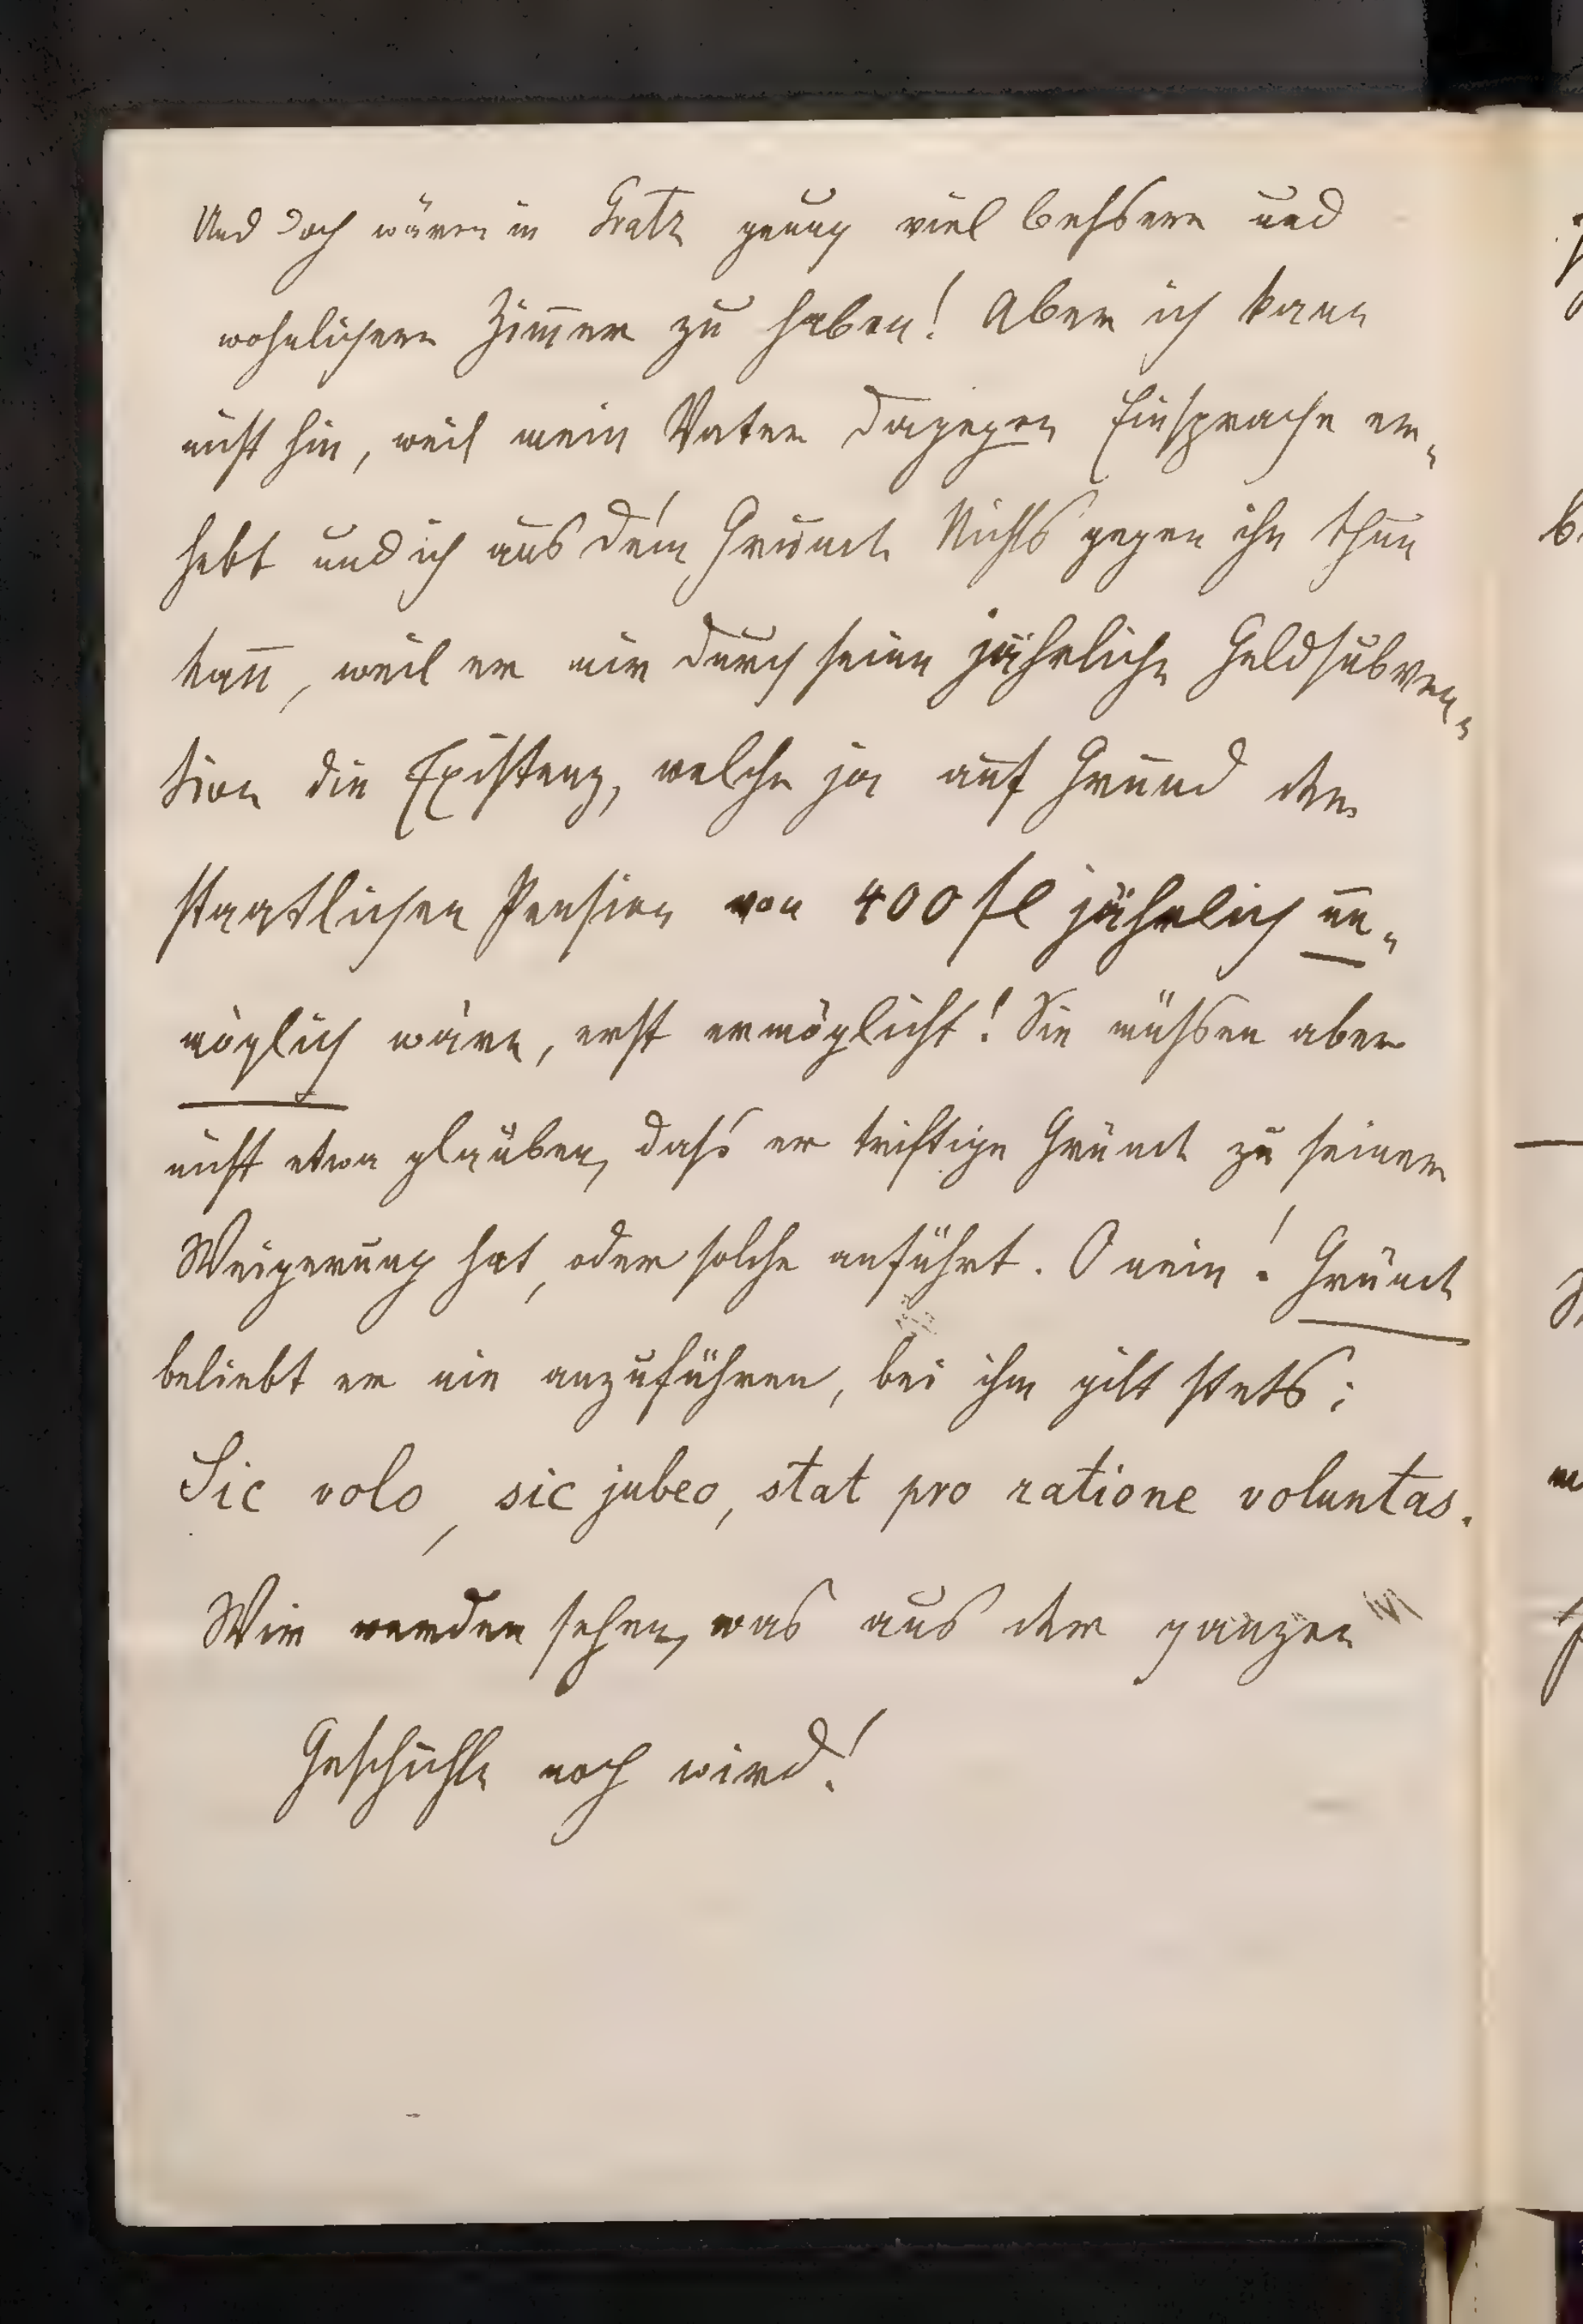 Und doch wären in Gratz genug viel bessere und
wohnlichere Zim̅er zu haben! Aber ich kann
nicht hin, weil mein Vater dagegen Einsprache er-
hebt und ich aus dem Grunde Nichts gegen ihn thun
kan̅, weil er mir durch seine jährliche Geldsubven-
tion die Existenz, welche ja auf Grund der
staatlichen Pension von 400 fl jährlich un-
möglich wäre, erst ermöglicht! Sie müssen aber
nicht etwa glauben, dass er triftige Gründe zu seiner
Weigerung hat, oder solche anführt. O nein! Gründe
beliebt er nie anzuführen, bei ihm gilt stets:
Sic volo, sic jubeo, stat pro ratione voluntas.
Wir werden sehen, was aus der ganzen
Geschichte noch wird!